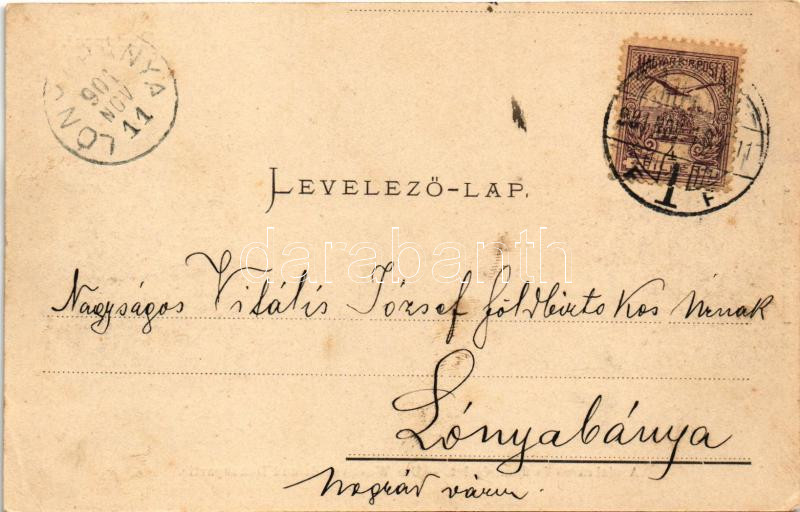 LÓNYABÁNYA
901
NOV
11
MAGYAR KIR. POSTA
LEVELEZŐ-LAP.
darabanth
Nagyságos Vitális József földbirtokos úrnak
Lónyabánya
Nográd várm.